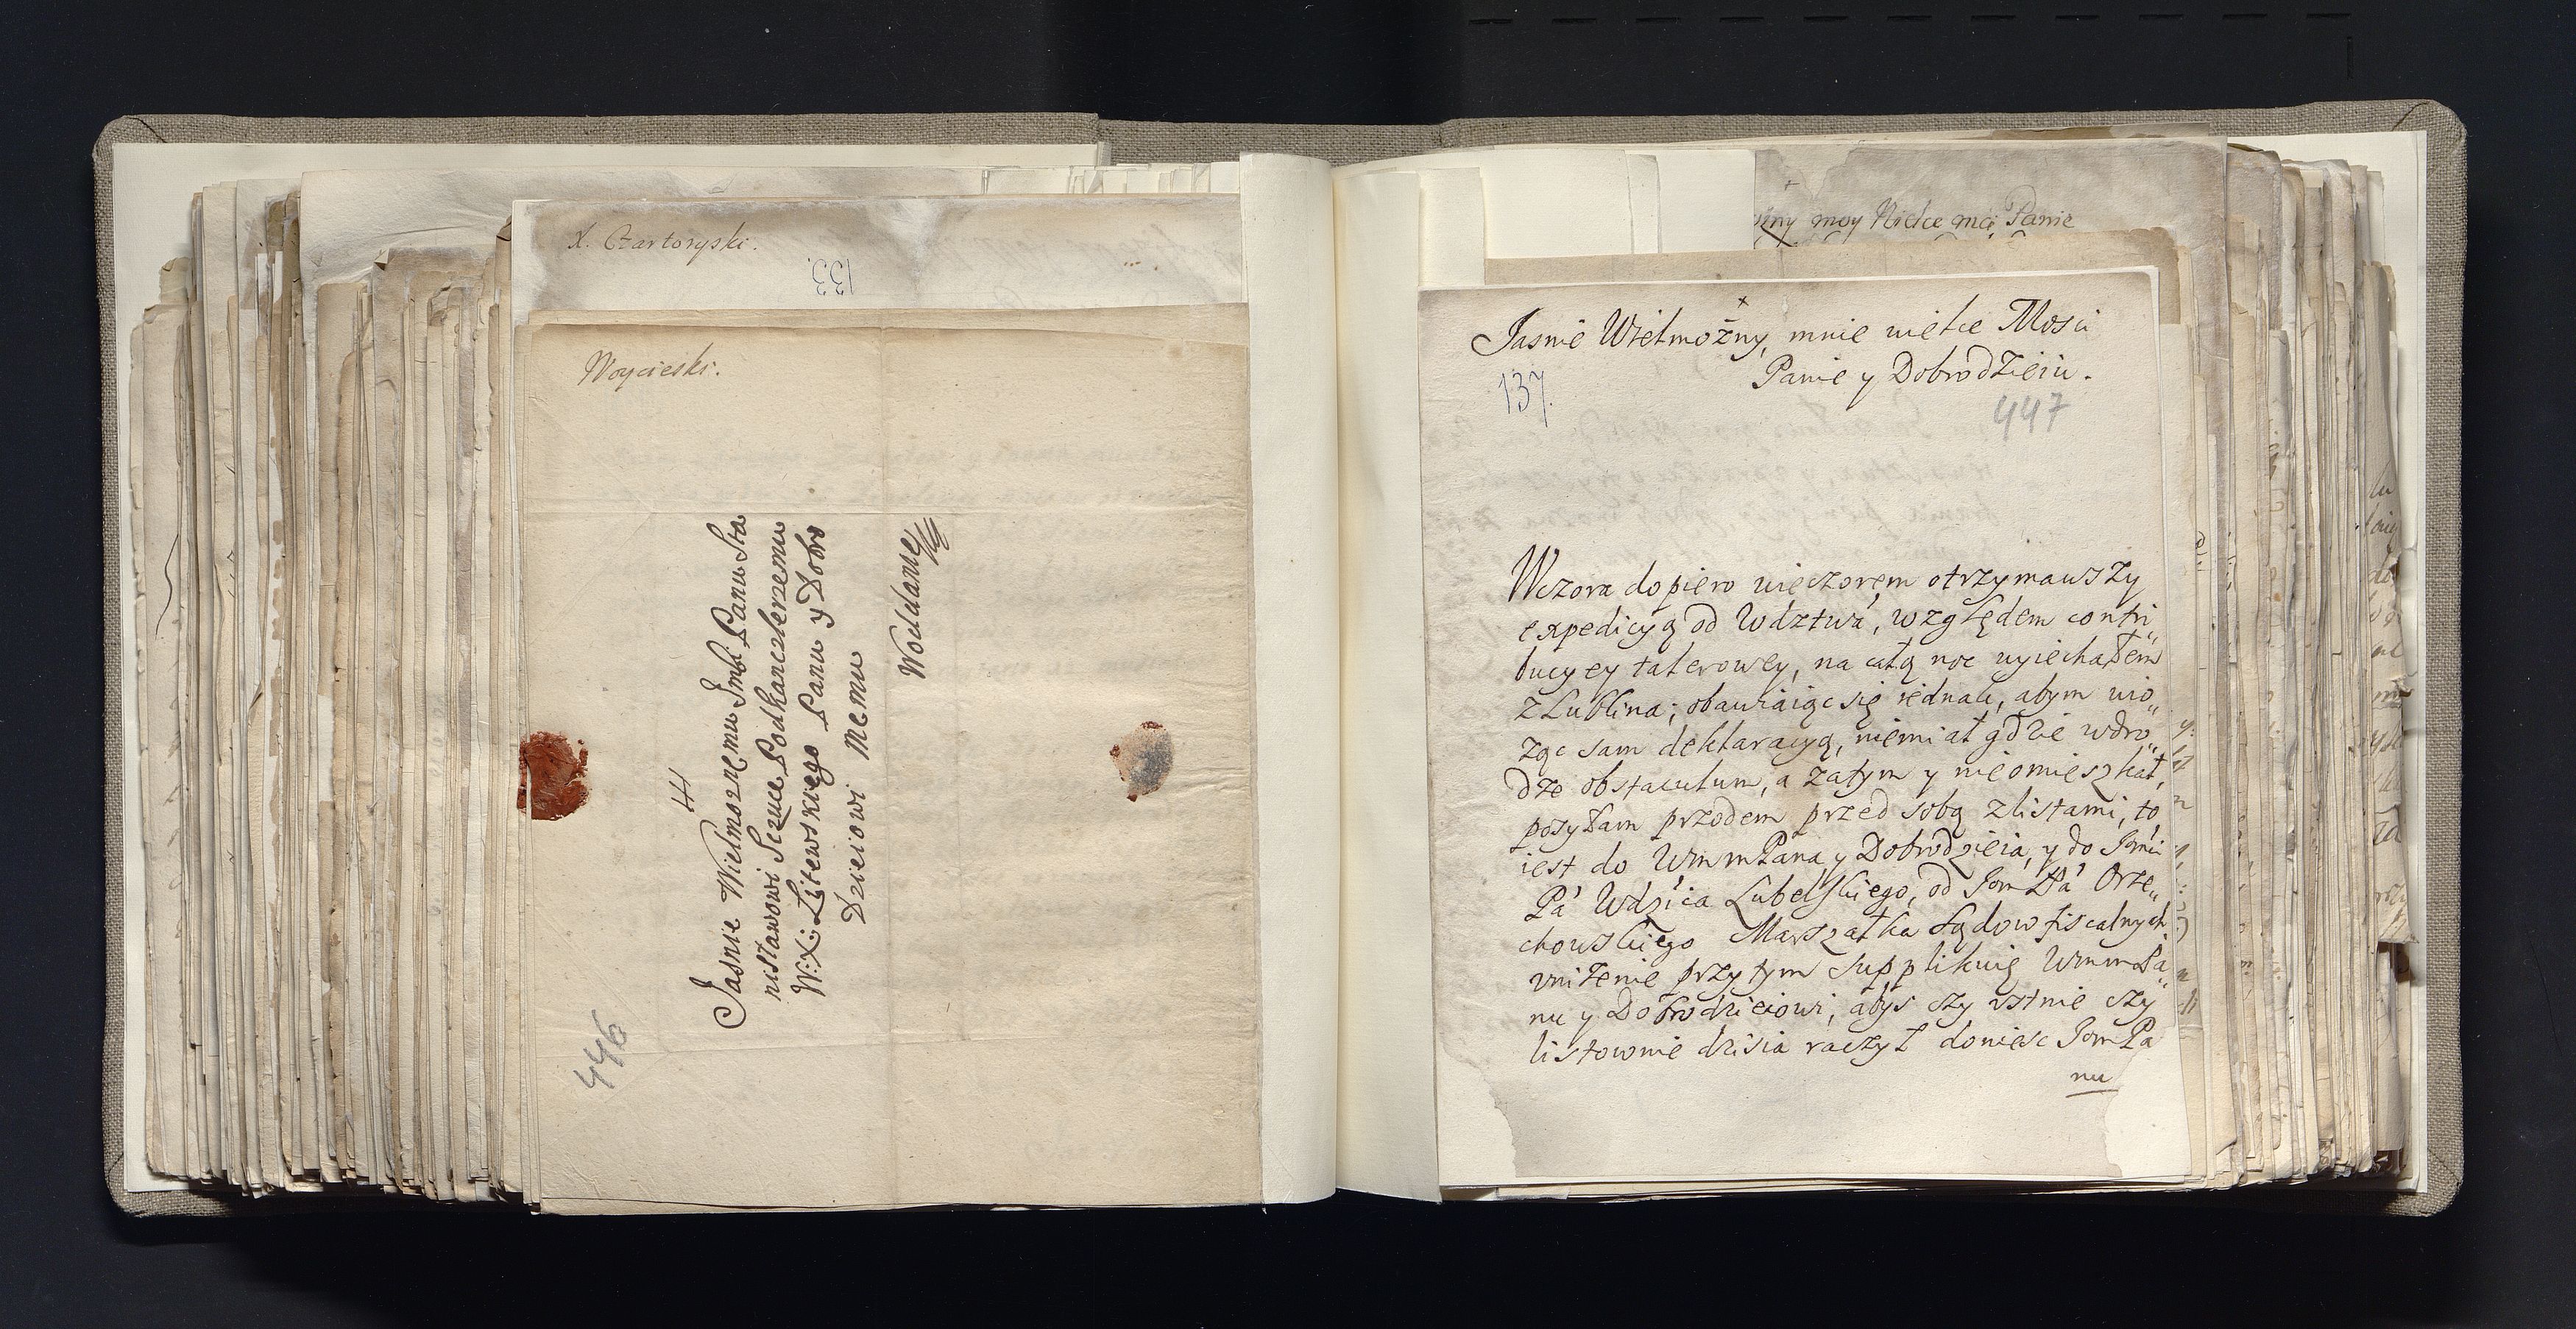 X. Czartoryski.
133.
Woycieski.
#
Jasnie Wielmoznemu Jmći Panu Sta
nisławowi Szczuce Podkanclerzemu
W: X: Litewskiego Panu y Dobro
Dzieiowi Memu
Woddanie
446
iny moy Wielce mci Panie
x
Jasnie Wielmożny, mnie wielce Mosci
Panie y Dobrodzieiu.
137.
447
Wczora dopiero wieczorem otrzymawszy
expedicyą od Wdztwa, względem contri„
bucyey talerowey, na całą noc wyiechałem
z Lublina; obawiaiąc się iednak, abym wio„
ząc sam deklaracyą, niemiał gdzie wdro„
dze obstaculum, a zatym y nieomieszkał,
posyłam przodem przed sobą zlistami, to
iest do WmmPana y Dobrodzieia, y do Jmći
Pa Wdzica Lubelskiego, od Jom Pa Orze„
chowskiego Marszałka sądow fiscalnych
vniżenie przytym supplikuię WmmPa„
nu y Dobrodzieiowi, abyś czy vstnie czy
listownie dzisia raczył donieść Jom Pa
nu